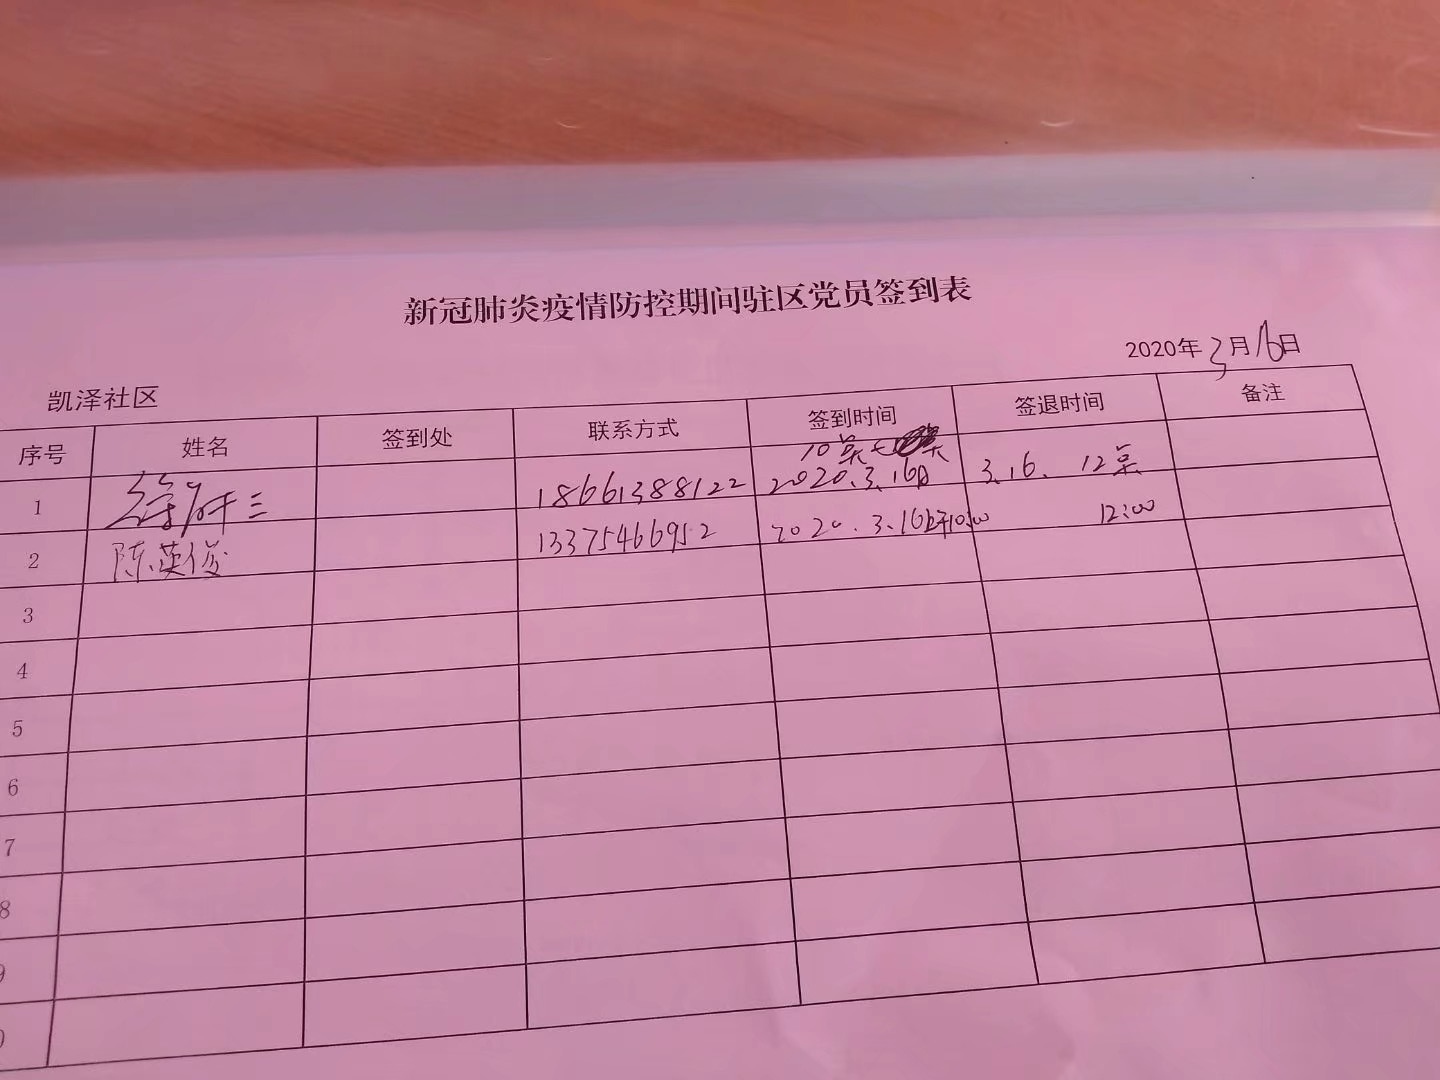 新冠肺炎疫情防控期间驻区党员签到表
2020年3月16日
凯泽社区
序号 姓名 签到处 联系方式 签到时间 签退时间 备注
10点
1 18661388122 2020.3.16日 3.16. 12点
2 陈英俊 13375466952 2020.3.16 12:00
3
4
5
6
7
8
9